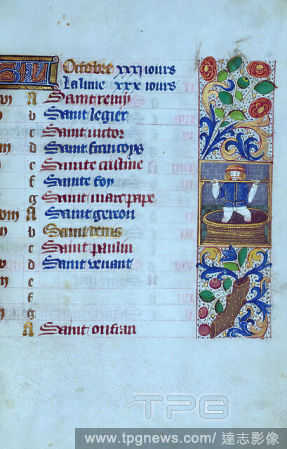 Octobre xxxi iours
La lune xxx iours
A Saint remy
b Saint legier
c Saint victor
d Saint francoys
e Sainte
f Sainte foy
g Saint marc pape
A Saint gereon
b Saint denis
c Saint paulin
d Saint venant
e
f
g
A Saint
TPG
www.tpgnews.com/ 達志影像